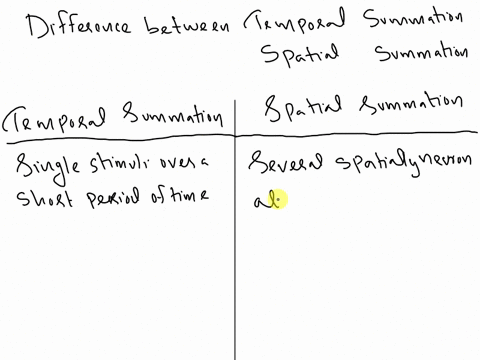 Difference between Temporal Summation
Spatial Summation
Temporal Summation
Spatial Summation
Single stimuli over a
short period of time
Several spatialy neuron